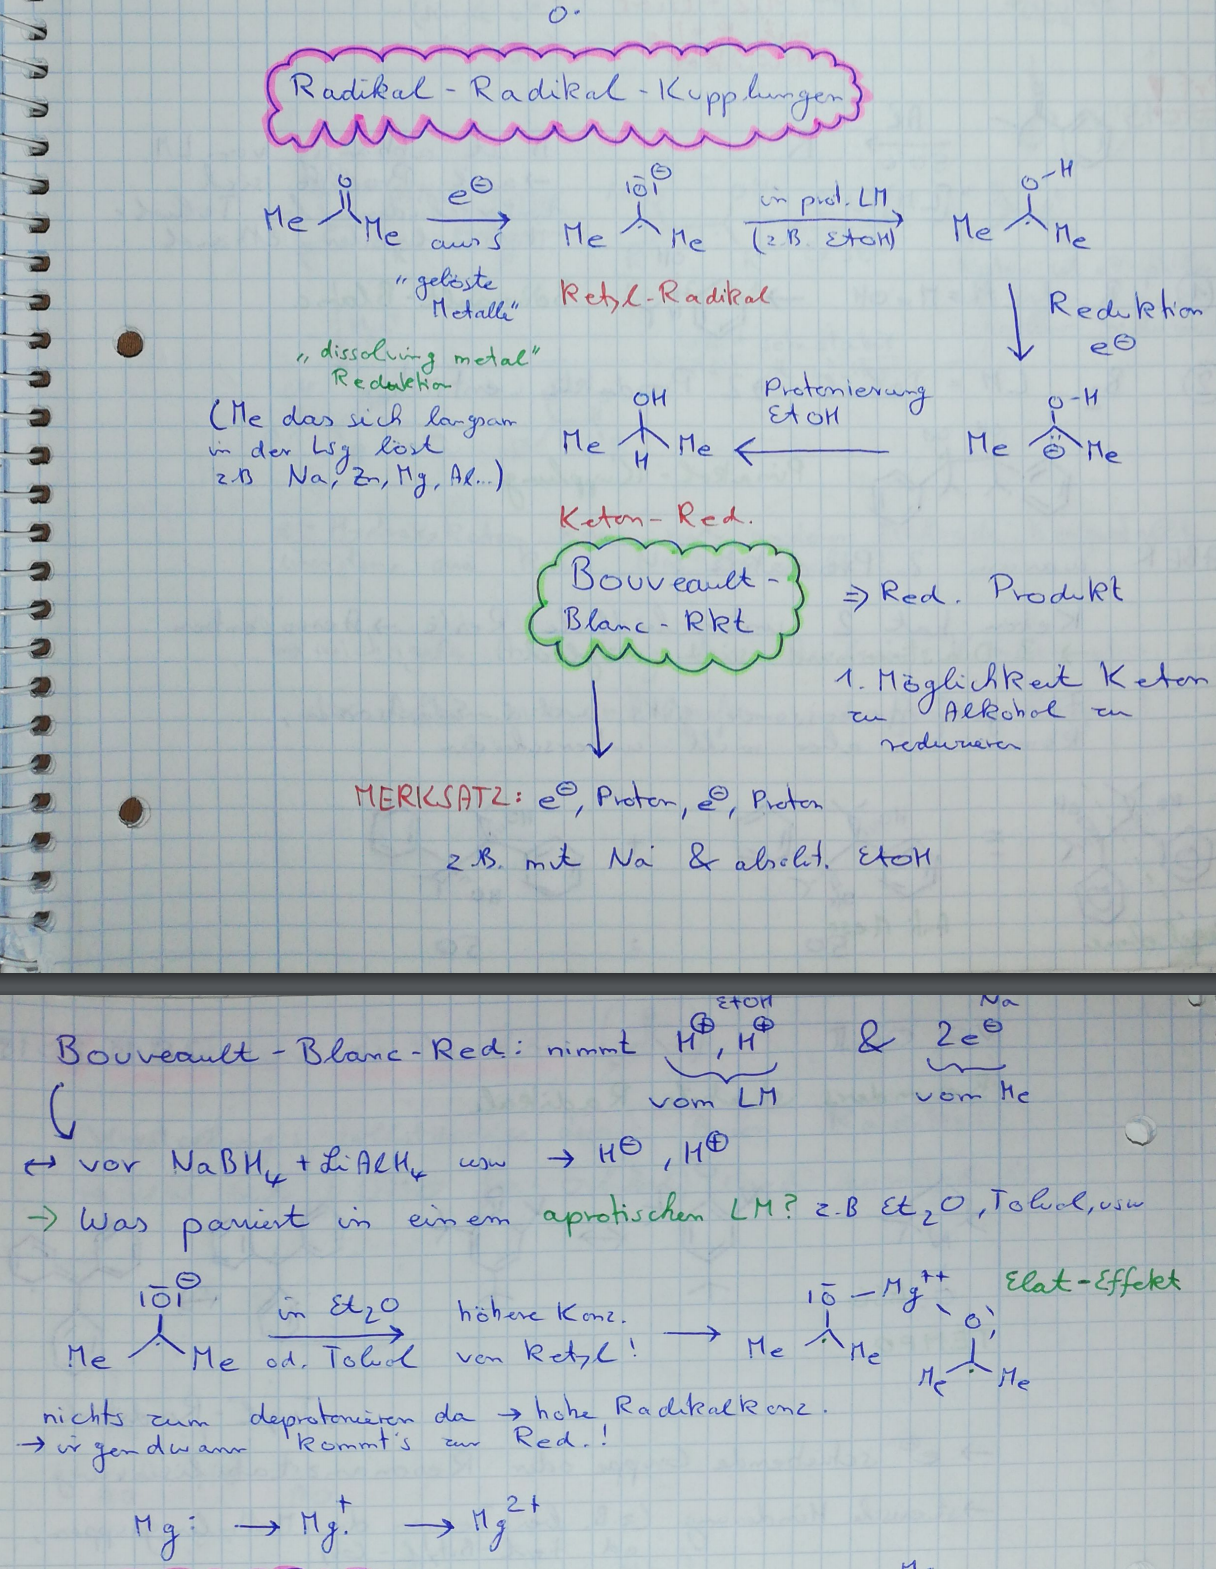 O·
Radikal-Radikal-Kupplungen
O
Me Me
e⊖
aus
"gelöste
Metalle"
|O̅|⊖
Me Me
Ketyl-Radikal
in prot. LM
(z.B. EtOH)
O-H
Me Me
Reduktion
e⊖
"dissolving metal"
Reduktion
(Me das sich langsam
in der Lsg löst
z.B Na, Zn, Mg, Al...)
OH
Me Me
H
Protonierung
EtOH
O-H
Me ⊖ Me
Keton-Red.
Bouveault-
Blanc-Rkt
⇒ Red. Produkt
1. Möglichkeit Keton
zu Alkohol zu
reduzieren
MERKSATZ: e⊖, Proton, e⊖, Proton
z.B. mit Na & absolut. EtOH
EtOH Na
Bouveault-Blanc-Red: nimmt H⊕, H⊕ & 2e⊖
vom LM vom Me
↔ vor NaBH₄ + LiAlH₄ usw → H⊖, H⊕
→ Was passiert in einem aprotischen LM? z.B Et₂O, Toluol, usw
|O̅|⊖
Me Me
in Et₂O
od. Toluol
höhere Konz.
von Ketyl!
→
|O̅-Mg⁺⁺
Me Me
O
Me Me
Elat-Effekt
nichts zum deprotonieren da → hohe Radikalkonz.
→ irgendwann kommt's zur Red.!
Mg: → Mg·⁺ → Mg²⁺